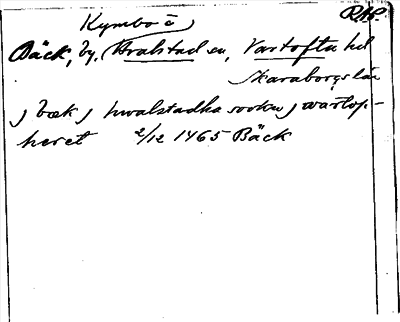 RAP.
Kymbo ä
Bäck, by, Hvalstad sn, Vartofta hd
Skaraborgs län
j bæk j hwalstadha sookn j wartop-
heret 2/12 1465 Bäck